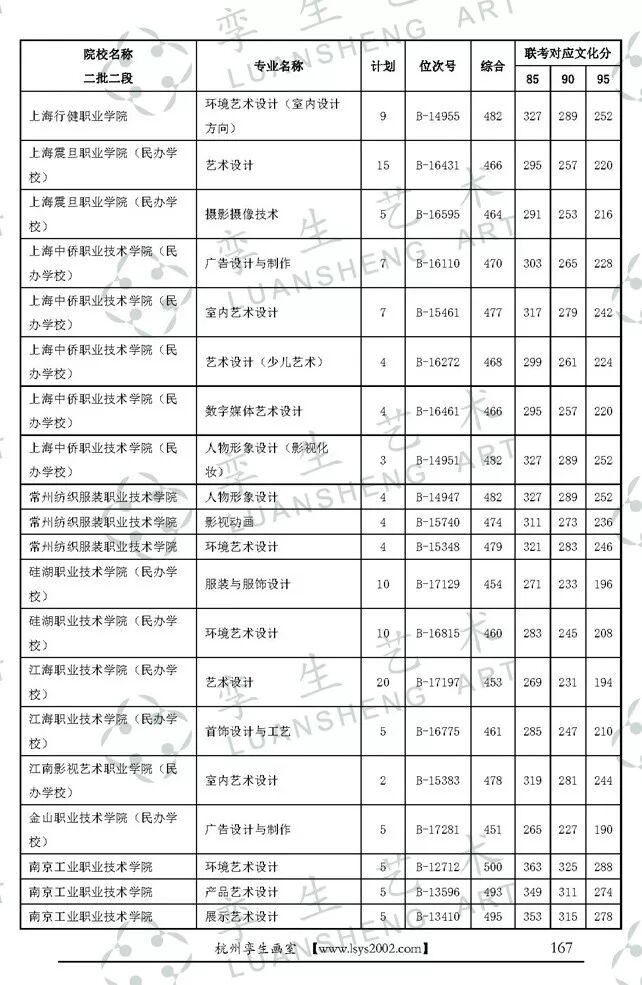 院校名称
二批二段
专业名称
计划
位次号
综合
联考对应文化分
85 90 95
上海行健职业学院 环境艺术设计（室内设计 9 B-14955 482 327 289 252
方向）
上海震旦职业学院（民办学 艺术设计 15 B-16431 466 295 257 220
校）
上海震旦职业学院（民办学 摄影摄像技术 5 B-16595 464 291 253 216
校）
上海中侨职业技术学院（民 广告设计与制作 7 B-16110 470 303 265 228
办学校）
上海中侨职业技术学院（民 室内艺术设计 7 B-15461 477 317 279 242
办学校）
上海中侨职业技术学院（民 艺术设计（少儿艺术） 4 B-16272 468 299 261 224
办学校）
上海中侨职业技术学院（民 数字媒体艺术设计 4 B-16461 466 295 257 220
办学校）
上海中侨职业技术学院（民 人物形象设计（影视化 3 B-14951 482 327 289 252
办学校） 妆）
常州纺织服装职业技术学院 人物形象设计 4 B-14947 482 327 289 252
常州纺织服装职业技术学院 影视动画 4 B-15740 474 311 273 236
常州纺织服装职业技术学院 环境艺术设计 4 B-15348 479 321 283 246
硅湖职业技术学院（民办学 服装与服饰设计 10 B-17129 454 271 233 196
校）
硅湖职业技术学院（民办学 环境艺术设计 10 B-16815 460 283 245 208
校）
江海职业技术学院（民办学 艺术设计 20 B-17197 453 269 231 194
校）
江海职业技术学院（民办学 首饰设计与工艺 5 B-16775 461 285 247 210
校）
江南影视艺术职业学院（民 室内艺术设计 2 B-15383 478 319 281 244
办学校）
金山职业技术学院（民办学 广告设计与制作 5 B-17281 451 265 227 190
校）
南京工业职业技术学院 环境艺术设计 5 B-12712 500 363 325 288
南京工业职业技术学院 产品艺术设计 5 B-13596 493 349 311 274
南京工业职业技术学院 展示艺术设计 5 B-13410 495 353 315 278
杭州孪生画室 【www.lsys2002.com】 167
孪生艺术
LUANSHENG ART
孪生艺术
LUANSHENG ART
孪生艺术
LUANSHENG ART
孪生艺术
LUANSHENG ART
孪生艺术
LUANSHENG ART